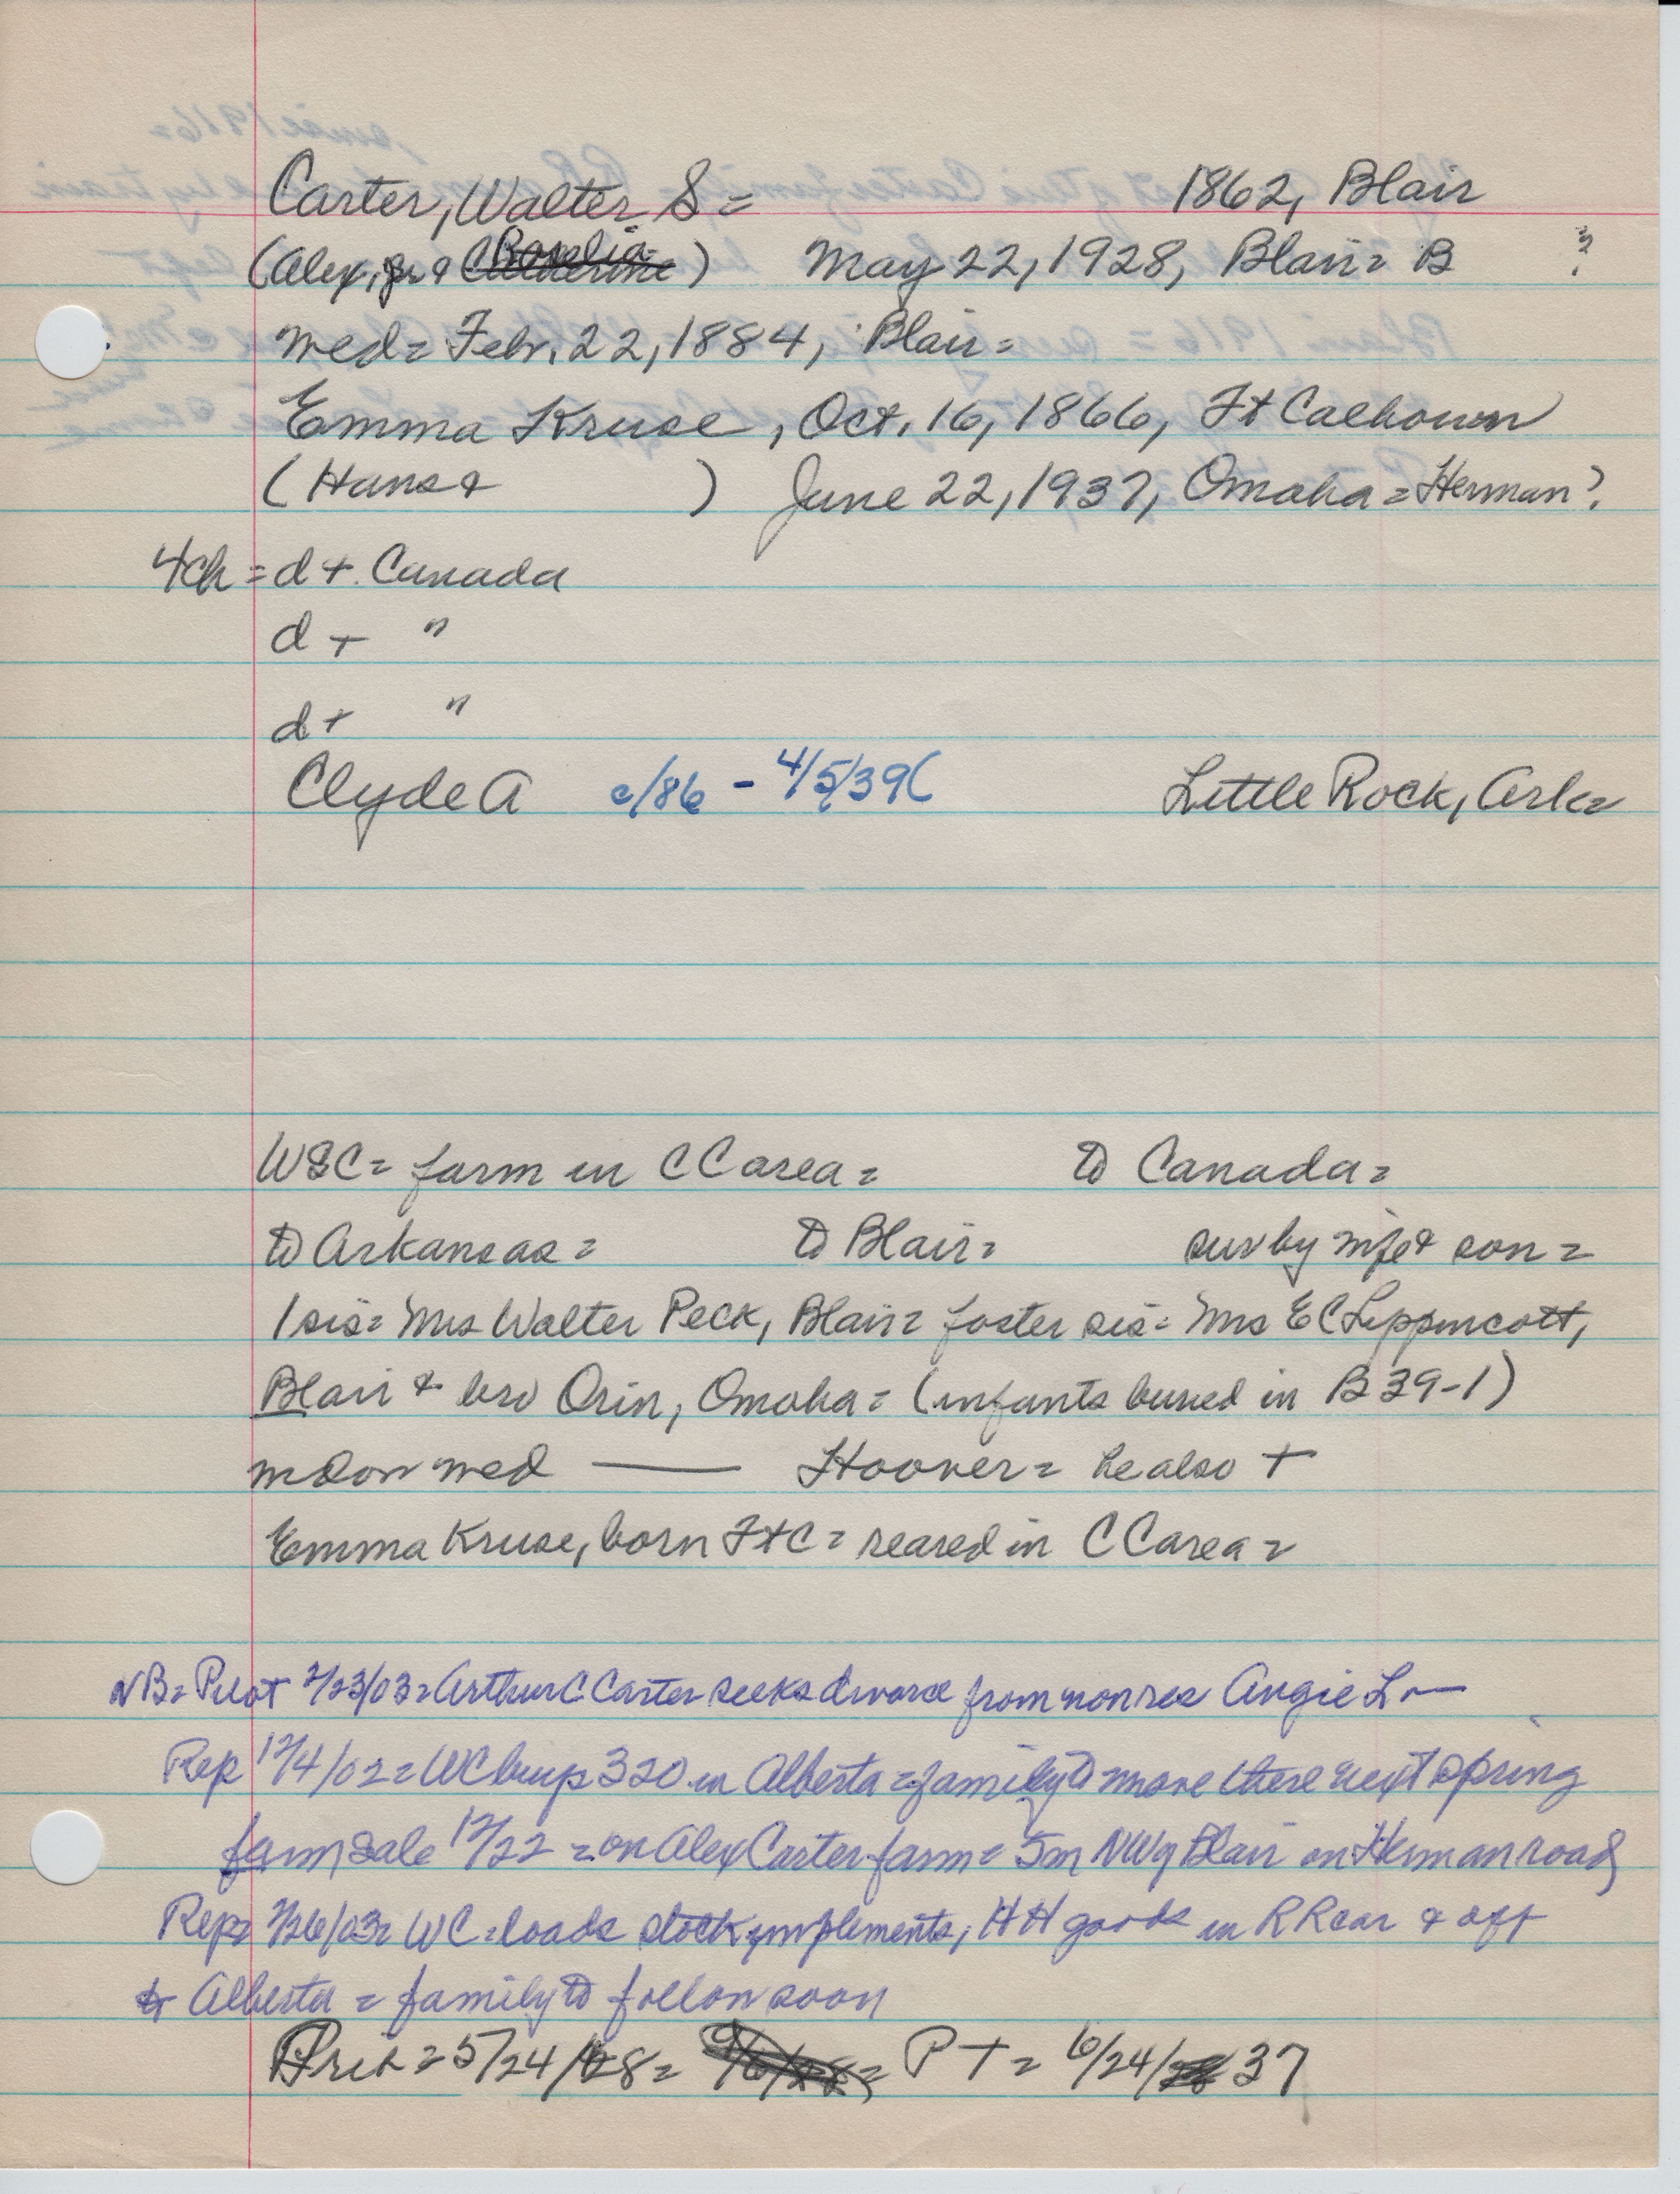 Carter, Walter S = 1862, Blair
(Alex, Jr & Rosalia) May 22, 1928, Blair = B ?
med = Febr. 22, 1884, Blair =
Emma Kruse, Oct. 16, 1866, Ft Calhoun
(Hans & ) June 22, 1937, Omaha = Herman?
4ch = d + Canada
d + "
d + "
Clyde A c/86 - 4/5/39( Little Rock, Ark =
WSC = farm in CC area = to Canada =
to Arkansas = to Blair = sur by wife & son =
1 sis = Mrs Walter Peck, Blair = foster sis = Mrs E C Lippincott,
Blair & bro Orin, Omaha = (infants buried in B 39-1)
med —— Hoover = he also +
Emma Kruse, born Ft C = reared in CC area =
NB = Pilot 2/23/03 = Arthur C Carter seeks divorce from nonres Angie L
Rep 12/4/02 = WC buys 320 in Alberta = family to move there next spring
farm sale 12/22 = on Alex Carter farm = 5m NW of Blair on Herman road
Rep = /26/03 = WC = loads stock, implements, HH goods in RR car & off
to Alberta = family to follow soon
5/24/28 = PT = 6/24/37